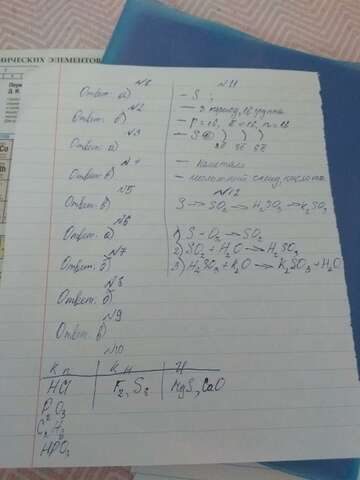 МИЧЕСКИХ ЭЛЕМЕНТОВ
N1
Ответ: а)
N2
Ответ: б)
N3
Ответ: а)
N4
Ответ: в)
N5
Ответ: в)
N6
Ответ: а)
N7
Ответ: б)
N8
Ответ: б)
N9
Ответ: в)
N10
Кп | Кн | И
HCl | F2, S2 | MgS, CaO
P2O3
C2H6
HPO3
N11
– S ;
– 3 период, 16 группа
– P=16, ē=16, n=16
– S ) ) )
2ē 8ē 6ē
– неметалл
– кислота
N12
S → SO2 → H2SO3 → K2SO3
1) S + O2 → SO2
2) SO2 + H2O → H2SO3
3) H2SO3 + K2O → K2SO3 + H2O